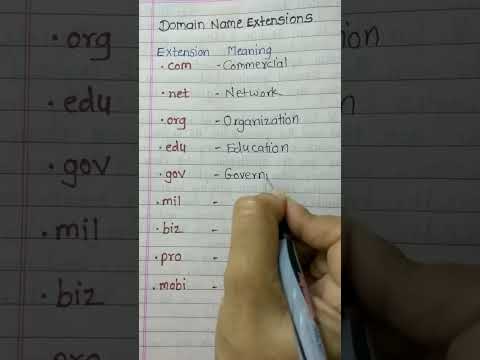 Domain Name Extensions
Extension Meaning
.com - Commercial
.net - Network
.org - Organization
.edu - Education
.gov - Govern
.mil -
.biz -
.pro -
.mobi -
.org
.edu
.gov
.mil
.biz